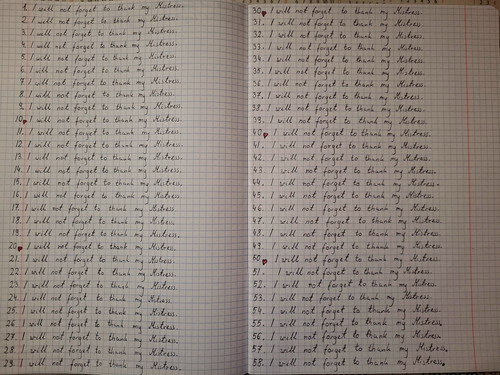 1. I will not forget to thank my Mistress.
2. I will not forget to thank my Mistress.
3. I will not forget to thank my Mistress.
4. I will not forget to thank my Mistress.
5. I will not forget to thank my Mistress.
6. I will not forget to thank my Mistress.
7. I will not forget to thank my Mistress.
8. I will not forget to thank my Mistress.
9. I will not forget to thank my Mistress.
10. I will not forget to thank my Mistress.
11. I will not forget to thank my Mistress.
12. I will not forget to thank my Mistress.
13. I will not forget to thank my Mistress.
14. I will not forget to thank my Mistress.
15. I will not forget to thank my Mistress.
16. I will not forget to thank my Mistress.
17. I will not forget to thank my Mistress.
18. I will not forget to thank my Mistress.
19. I will not forget to thank my Mistress.
20. I will not forget to thank my Mistress.
21. I will not forget to thank my Mistress.
22. I will not forget to thank my Mistress.
23. I will not forget to thank my Mistress.
24. I will not forget to thank my Mistress.
25. I will not forget to thank my Mistress.
26. I will not forget to thank my Mistress.
27. I will not forget to thank my Mistress.
28. I will not forget to thank my Mistress.
29. I will not forget to thank my Mistress.
30. I will not forget to thank my Mistress.
31. I will not forget to thank my Mistress.
32. I will not forget to thank my Mistress.
33. I will not forget to thank my Mistress.
34. I will not forget to thank my Mistress.
35. I will not forget to thank my Mistress.
36. I will not forget to thank my Mistress.
37. I will not forget to thank my Mistress.
38. I will not forget to thank my Mistress.
39. I will not forget to thank my Mistress.
40. I will not forget to thank my Mistress.
41. I will not forget to thank my Mistress.
42. I will not forget to thank my Mistress.
43. I will not forget to thank my Mistress.
44. I will not forget to thank my Mistress.
45. I will not forget to thank my Mistress.
46. I will not forget to thank my Mistress.
47. I will not forget to thank my Mistress.
48. I will not forget to thank my Mistress.
49. I will not forget to thank my Mistress.
50. I will not forget to thank my Mistress.
51. I will not forget to thank my Mistress.
52. I will not forget to thank my Mistress.
53. I will not forget to thank my Mistress.
54. I will not forget to thank my Mistress.
55. I will not forget to thank my Mistress.
56. I will not forget to thank my Mistress.
57. I will not forget to thank my Mistress.
58. I will not forget to thank my Mistress.